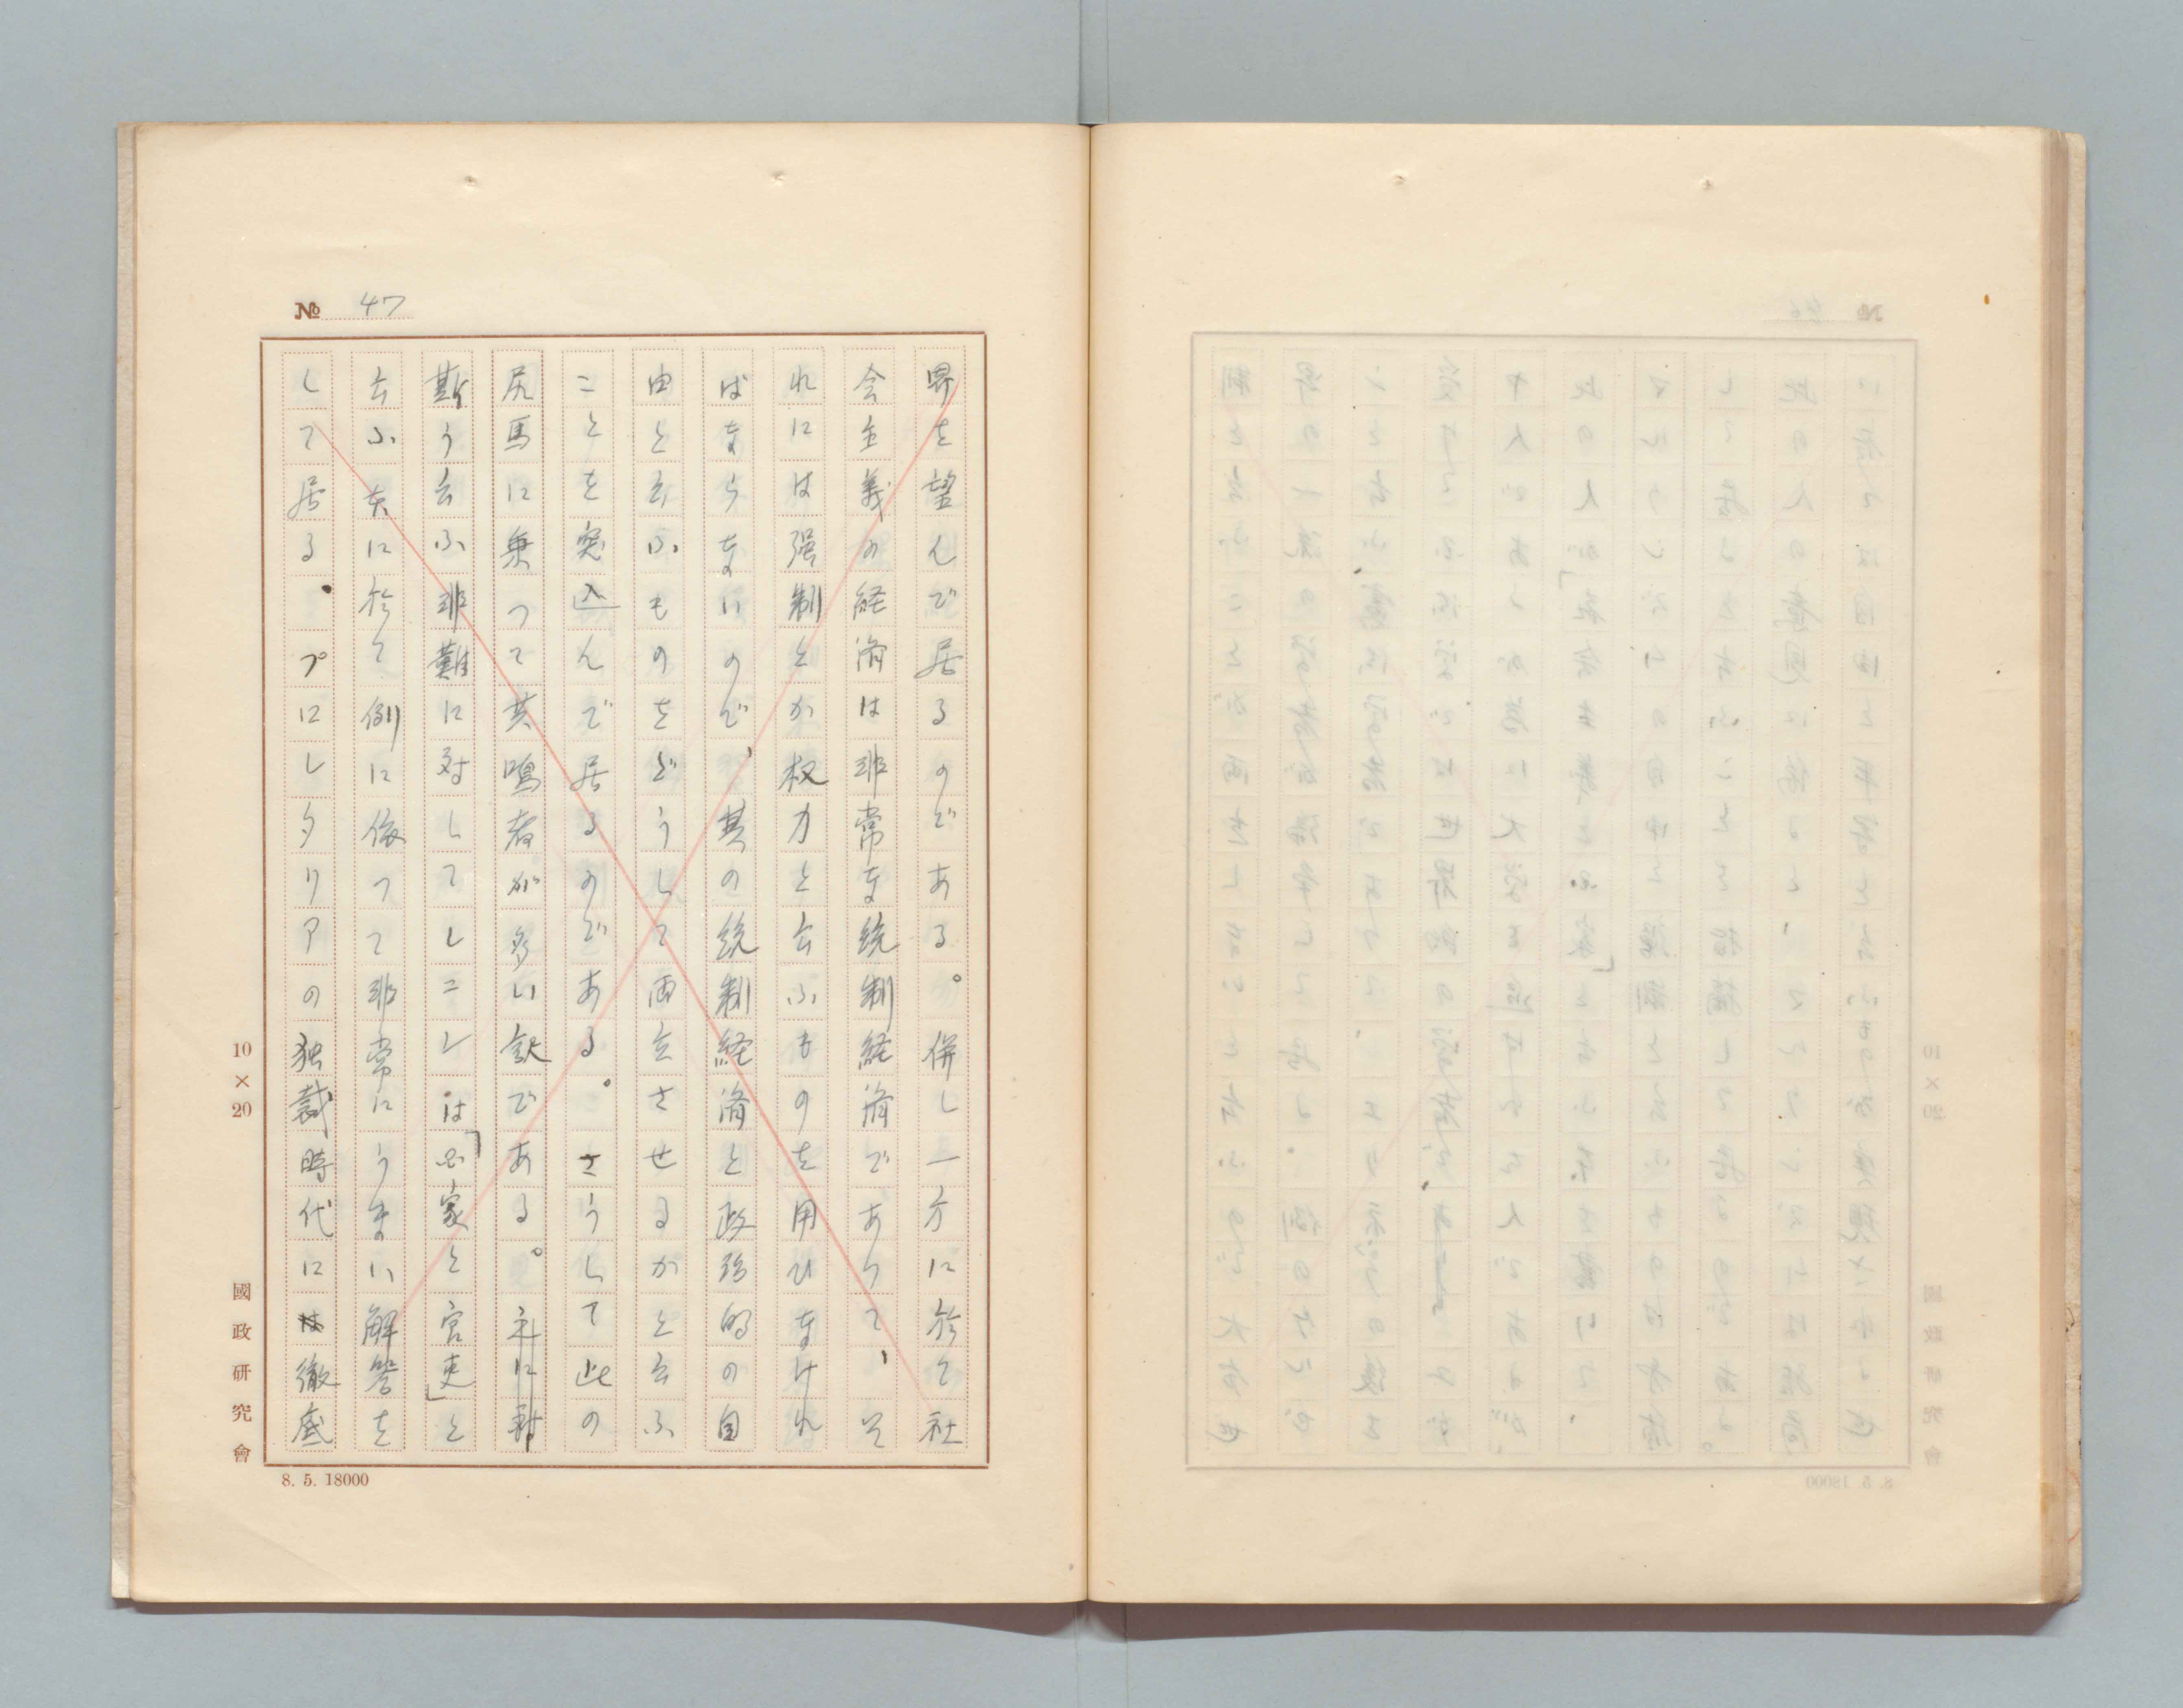 № 47
界を望んで居るのである。併し一方に於て社
会主義の経済は非常な統制経済であつて、そ
れには強制とか权力と云ふものを用ひなけれ
ばならないので、其の統制経済と政治的の自
由と云ふものをどうして両立させるかと云ふ
ことを突込んで居るのである。さうして此の
尻馬に乗つて共鳴者が多い訳である。之に対
斯う云ふ非難に対してレニンは「国家と官吏」と
云ふ本に於て例に依つて非常にうまい解答を
して居る。プロレタリアの独裁時代には徹底
10×20
國政研究會
8. 5. 18000